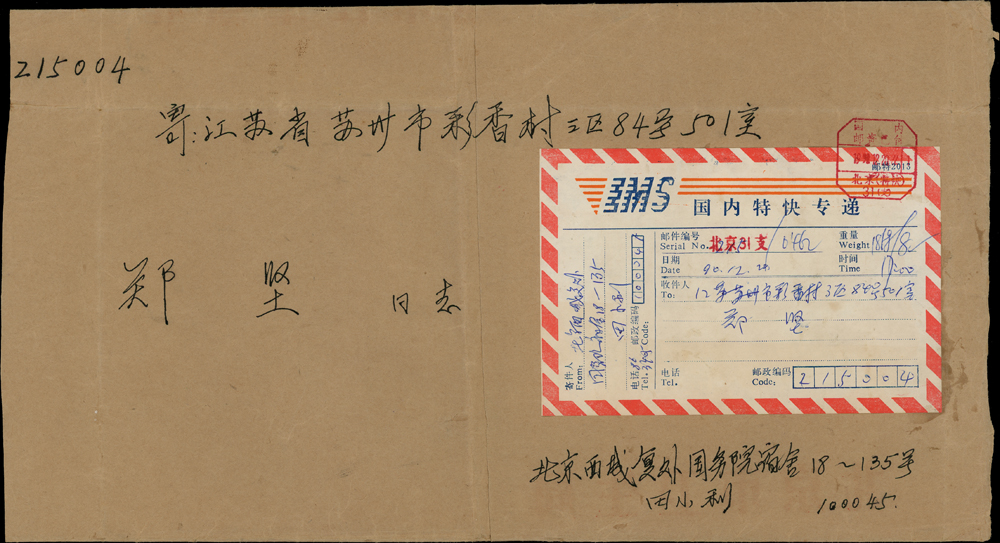 215004
寄:江苏省苏州市彩香村三区84号501室
郑坚 同志
国内
邮资
邮特2013
北京
31
EMS
国内特快专递
邮件编号
Serial No.
北京31支
0462
重量
Weight
日期
Date 90.12.
时间
Time
收件人
To: 江苏苏州市彩香村3区84号501室
郑坚
电话
Tel.
邮政编码
Code: 215004
寄件人
From:
18-135
田小利
电话
Tel.
邮政编码
Code:
北京西城复外国务院宿舍18~135号
田小利 100045